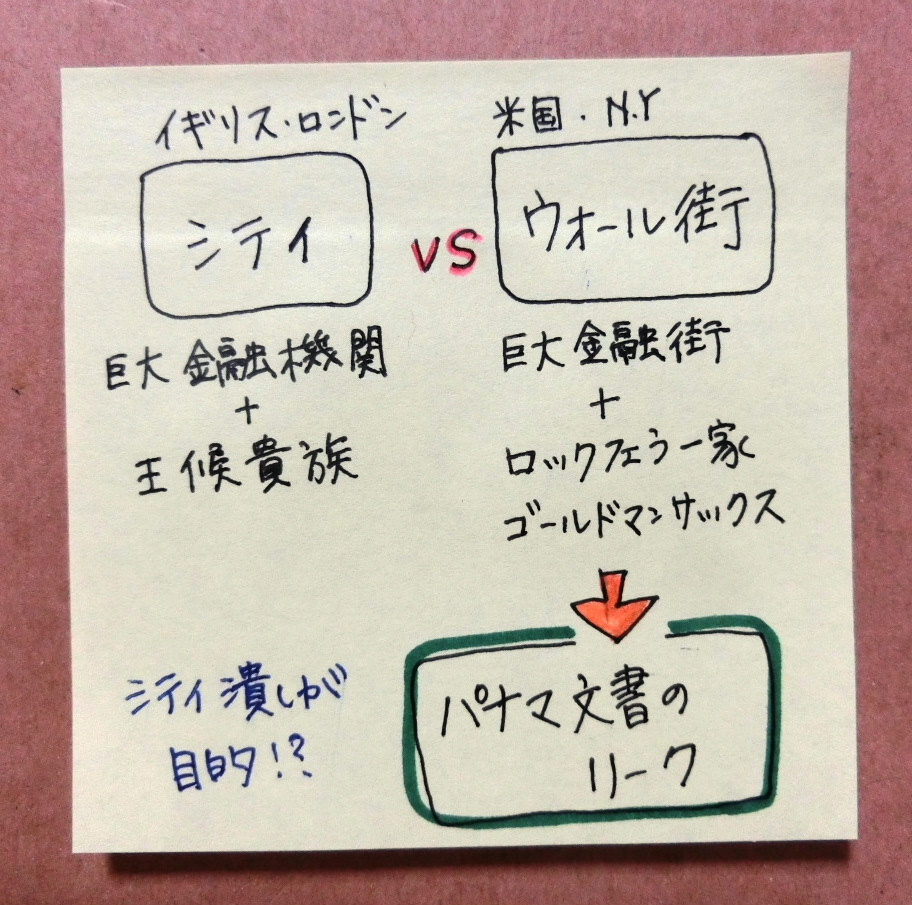 イギリス・ロンドン
シティ
巨大金融機関
+
王候貴族
vs
米国・N.Y
ウォール街
巨大金融街
+
ロックフェラー家
ゴールドマンサックス
パナマ文書の
リーク
シティ潰しが
目的!?